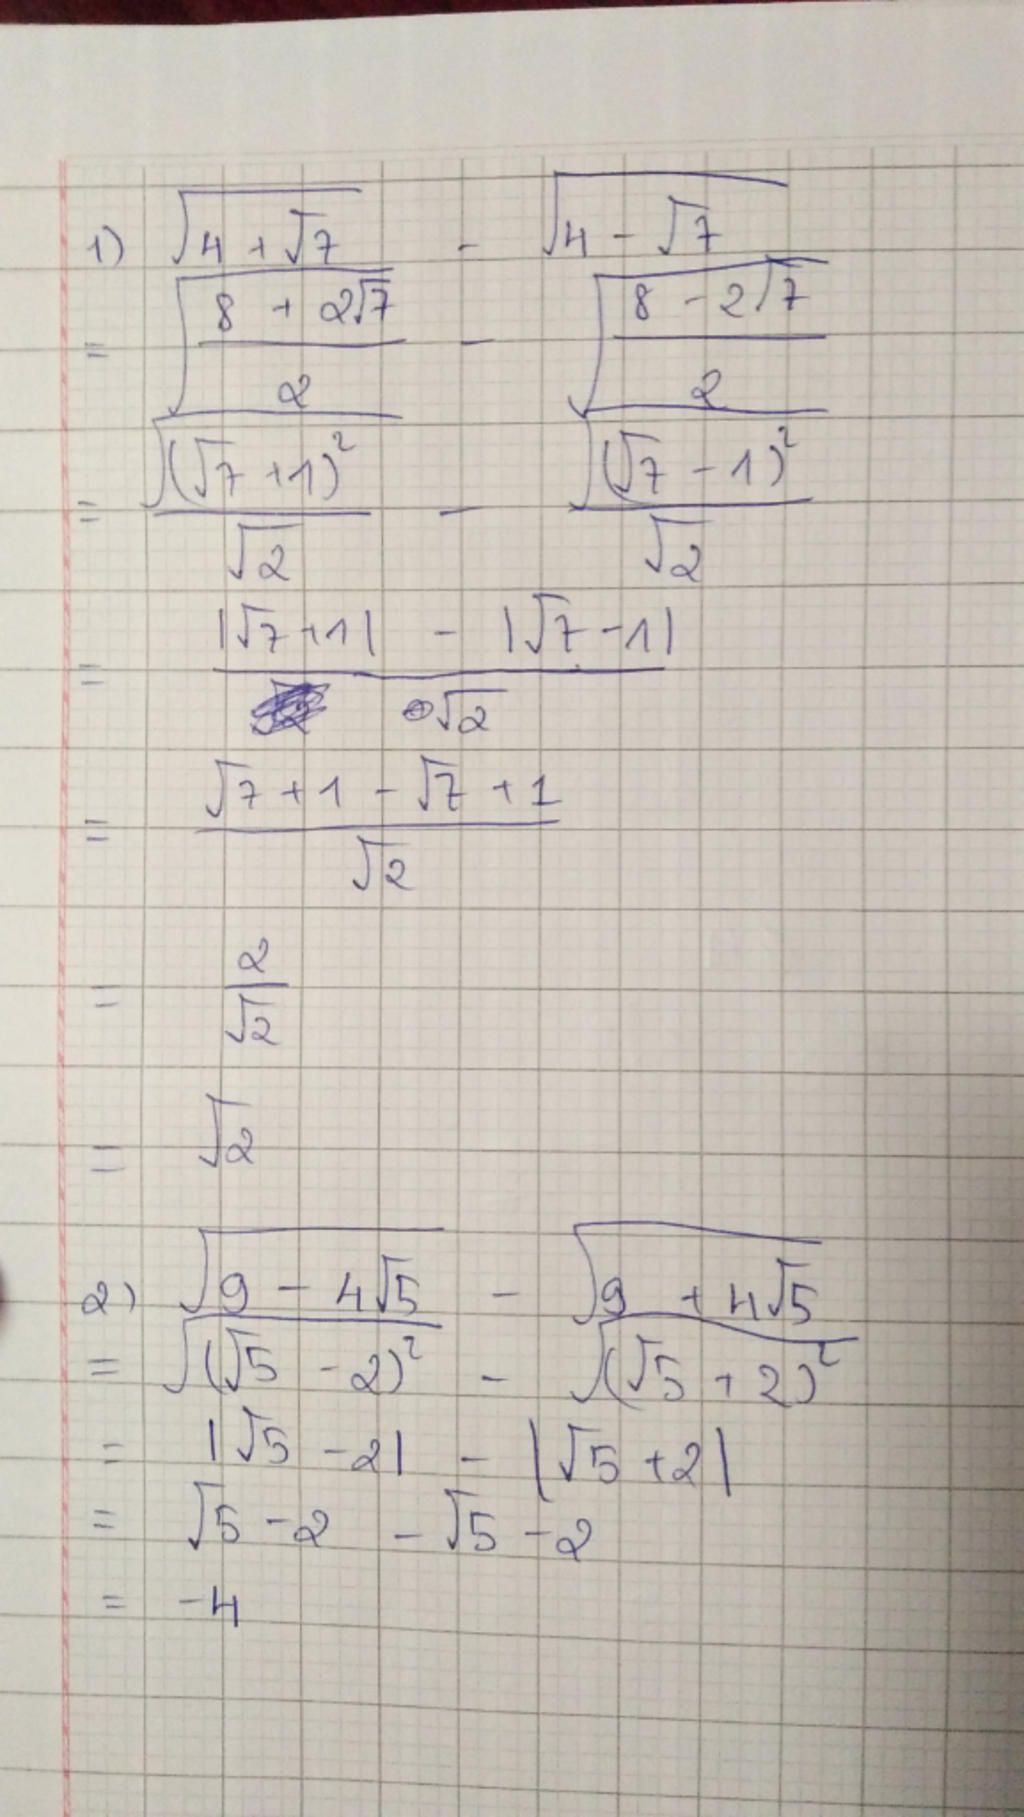 1) √(4 + √7) - √(4 - √7)
= √((8 + 2√7)/2) - √((8 - 2√7)/2)
= √((√7 + 1)²)/√2 - √((√7 - 1)²)/√2
= (|√7 + 1| - |√7 - 1|)/√2
= (√7 + 1 - √7 + 1)/√2
= 2/√2
= √2
2) √(9 - 4√5) - √(9 + 4√5)
= √((√5 - 2)²) - √((√5 + 2)²)
= |√5 - 2| - |√5 + 2|
= √5 - 2 - √5 - 2
= -4